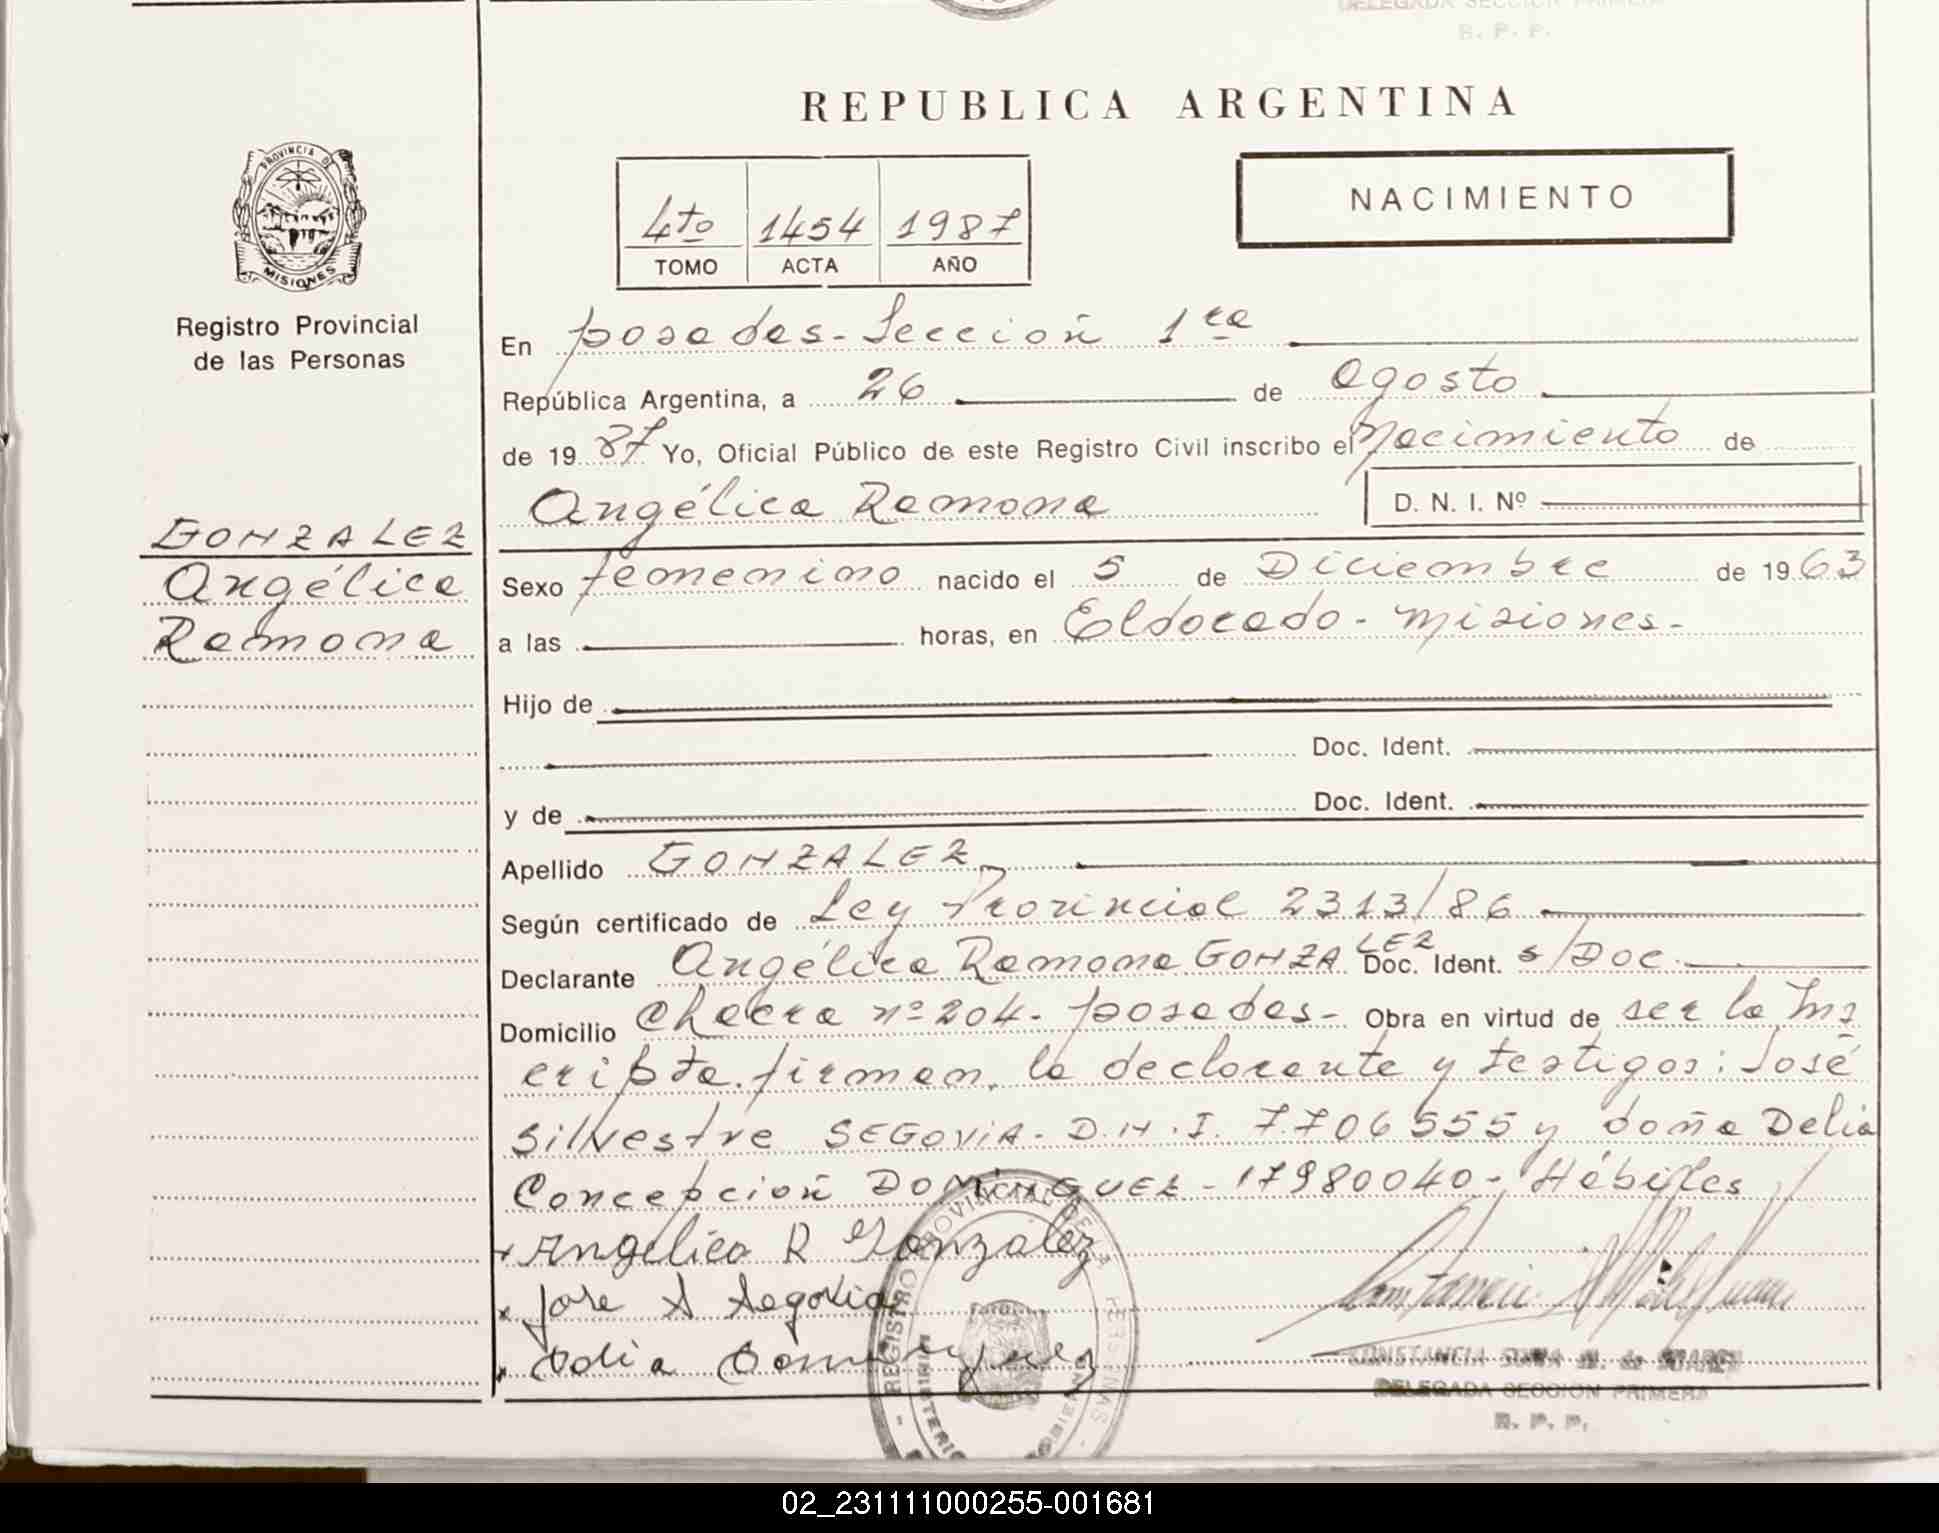 DELEGADA SECCION PRIMERA
R. P. P.
REPUBLICA ARGENTINA
PROVINCIA DE
MISIONES
4to 1454 1987
TOMO ACTA AÑO
NACIMIENTO
Registro Provincial
de las Personas
GONZALEZ
Angélica
Ramona
En posadas - Sección 1ra
República Argentina, a 26 de agosto
de 1987 Yo, Oficial Público de este Registro Civil inscribo el Nacimiento de
Angélica Ramona D. N. I. Nº
Sexo femenino nacido el 5 de Diciembre de 1963
a las horas, en Eldorado - Misiones -
Hijo de
Doc. Ident.
y de Doc. Ident.
Apellido GONZALEZ
Según certificado de Ley Provincial 2313/86
Declarante Angélica Ramona GONZALEZ Doc. Ident. s/Doc.
Domicilio Chacra nº 204 - posadas - Obra en virtud de ser la Ins
cripta. firman, la declarante y testigos: José
Silvestre SEGOVIA - D.N.I. 7706555 y doña Delia
Concepción DOMINGUEZ - 17980040 - Hábiles
x Angélica R Gonzalez
x Jose S Segovia
x Delia Dominguez
REGISTRO PROVINCIAL DE LAS PERSONAS
CONSTANCIA de SUAREZ
DELEGADA SECCION PRIMERA
R. P. P.
02_231111000255-001681